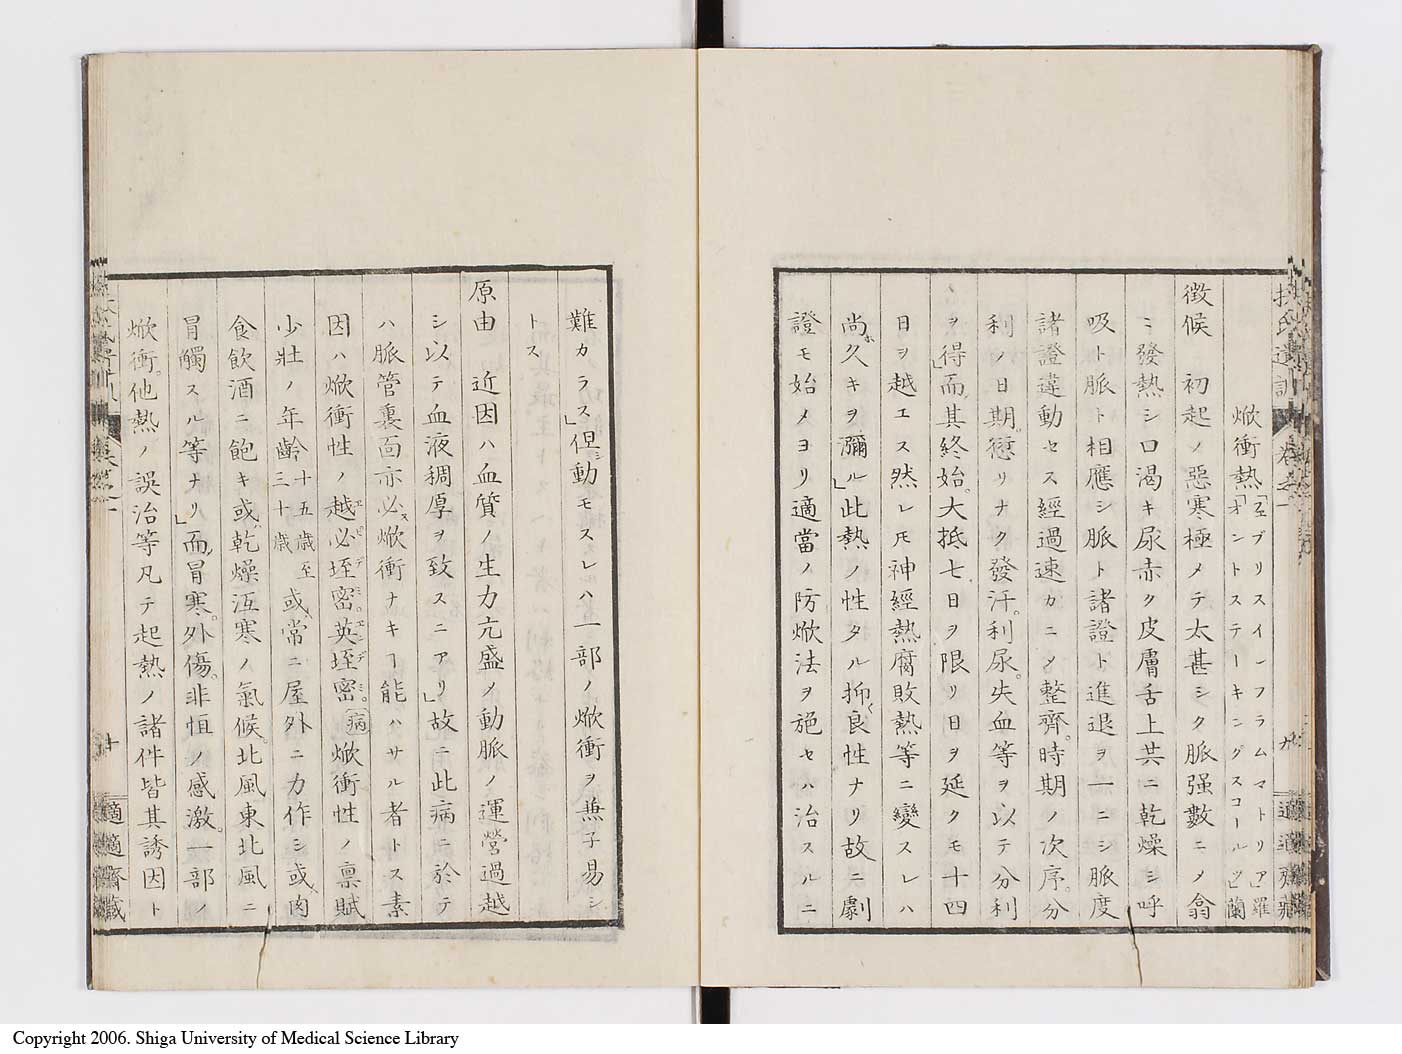 扶氏遺訓 卷之一 九 適適齋藏
焮衝熱「ヱブリスインフラムマトリア」羅「オントステーキングスコールツ」蘭
徴候 初起ノ惡寒極メテ太甚シク脈强數ニメ翕
ニ發熱シ口渴キ尿赤ク皮膚舌上共ニ乾燥シ呼
吸ト脈ト相應シ脈ト諸證ト進退ヲ一ニシ脈度
諸證違動セス經過速カニメ整齊。時期ノ次序。分
利ノ日期。愆リナク發汗。利尿。失血等ヲ以テ分利
ヲ得」而其終始。大抵七日ヲ限リ日ヲ延クモ十四
日ヲ越エス然レ𪜈神經熱腐敗熱等ニ變スレハ
尚ホ久キヲ彌ル」此熱ノ性タル抑良性ナリ故ニ劇
證モ始メヨリ適當ノ防焮法ヲ施セハ治スルニ
難カラス」但シ動モスレハ一部ノ焮衝ヲ兼子易シ
トス
原由 近因ハ血質ノ生力亢盛メ動脈ノ運營過越
シ以テ血液稠厚ヲ致スニアリ」故ニ此病ニ於テ
ハ脈管裏面亦必ス焮衝ナキヿ能ハサル者トス素
因ハ焮衝性ノ越必垤密。英垤密。病焮衝性ノ禀賦
エピデミ エンデミ
少壯ノ年齡十五歳至三十歳或ハ常ニ屋外ニ力作シ或ハ肉
食飲酒ニ飽キ或ハ乾燥沍寒ノ氣候。北風東北風ニ
冒觸スル等ナリ」而冒寒。外傷。非恒ノ感激。一部ノ
焮衝。他熱ノ誤治等凡テ起熱ノ諸件皆其誘因ト
十 適適齋藏
Copyright 2006. Shiga University of Medical Science Library